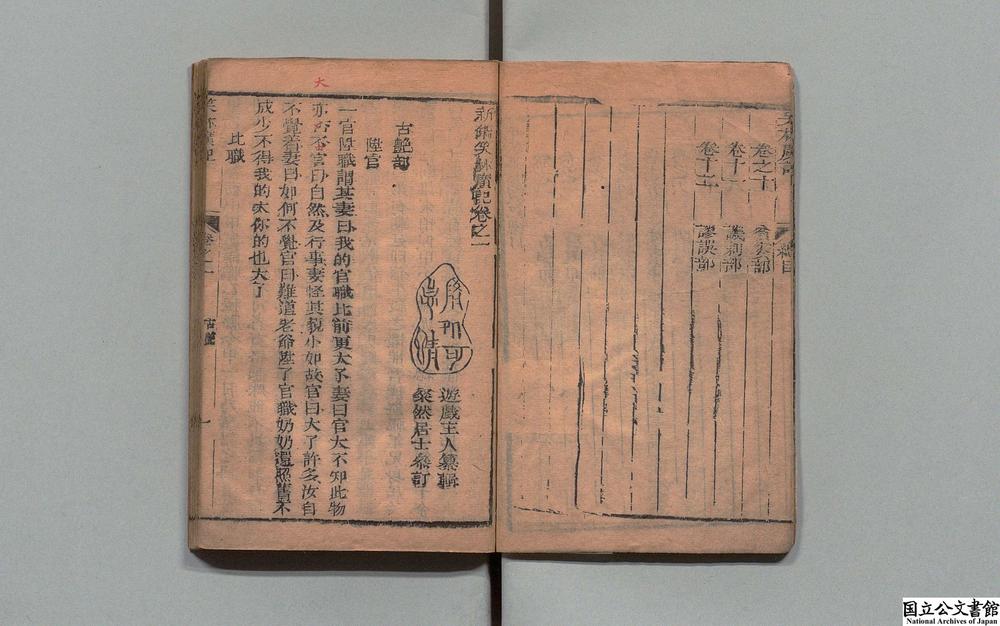 卷之十 貪吝部
卷十一 譏刺部
卷十二 謬誤部
總目
新鐫笑林廣記卷之一
遊戲主人纂輯
粲然居士參訂
古艷部
陞官
一官陞職謂其妻曰我的官職比前更大了妻曰官大不知此物
亦大不官曰自然及行事妻怪其藐小如故官曰大了許多汝自
不覺着妻曰如何不覺官曰難道老爺陞了官職奶奶還照舊不
成少不得我的大你的也大了
比職
笑林廣記
卷之一
古艷
一
大
国立公文書館
National Archives of Japan